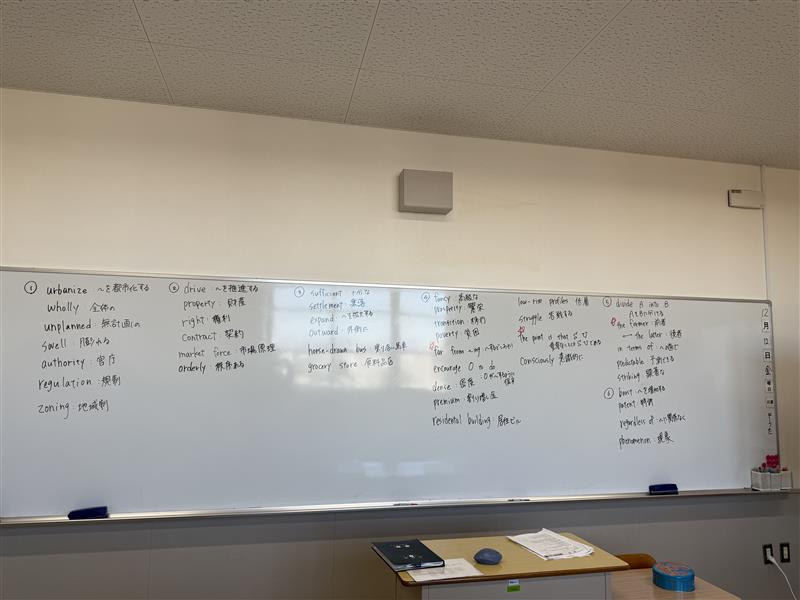 ① urbanize : 〜を都市化する
wholly 全体の
unplanned : 無計画の
swell : 膨らむる
authority : 官庁
regulation : 規制
zoning : 地域制
② drive : 〜を推進する
property : 財産
right : 権利
contract : 契約
market force : 市場原理
orderly 秩序ある
③ sufficient 十分な
settlement : 集落
expand : 〜を拡大する
outward : 外側に
horse-drawn bus 乗り合い馬車
grocery store : 食料品店
④ fancy : 高級な
prosperity 繁栄
transition : 移行
poverty 貧困
far from ~ing
encourage O to do
dense : 密度
premium : 割り増し金
residental building : 居住ビル
low-rim profiles 低層
struggle 苦戦する
the point is that S V
consciously 意識的に
⑤ divide A into B
AをBに分ける
the former : 前者
↔ the latter : 後者
in terms of : 〜の面で
predictable 予測できる
striking 顕著な
⑥ boost : 〜を増加する
patent : 特許
regardless of : 〜に関係なく
phenomenon : 現象
12
月
12
日
金
曜
日